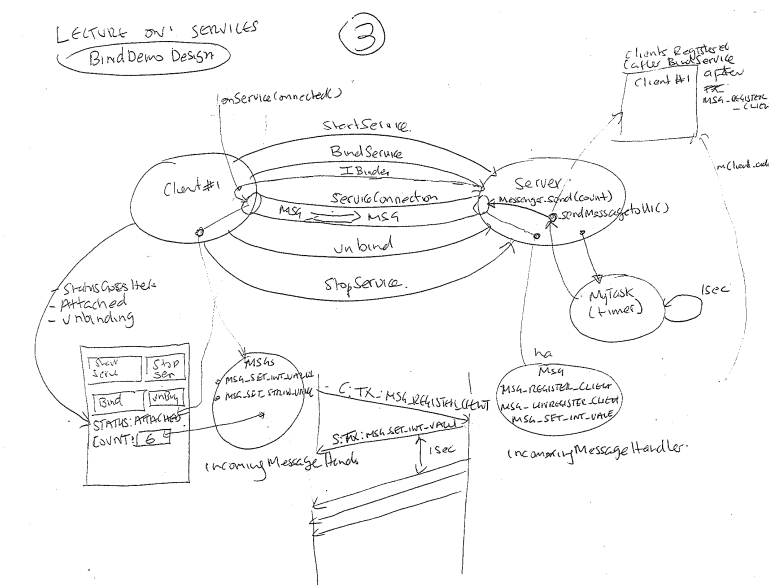 LECTURE ON: SERVICES
BindDemo Design
3
Clients Registered
(after BindService
Client #1
after
MSG_REGISTER
_CLIENT
mClient.add
onServiceConnected()
StartService
BindService
IBinder
Client #1
ServiceConnection
MSG
MSG
unbind
StopService.
Server
Messenger.send(count)
sendMessagetoUI()
MyTask
(timer)
1sec
- Attached
- Unbinding
Start
Stop
Bind
STATUS: ATTACHED
COUNT:
MSGs
MSG_SET_INT_VALUE
MSG_SET_STRING_VALUE
IncomingMessageHandler
C: TX: MSG_REGISTER_CLIENT
S: TX: MSG_SET_INT_VALUE
1sec
ha
MSG
MSG-REGISTER_CLIENT
MSG_UNREGISTER_CLIENT
MSG_SET_INT_VALE
IncomoxingMessageHandler.